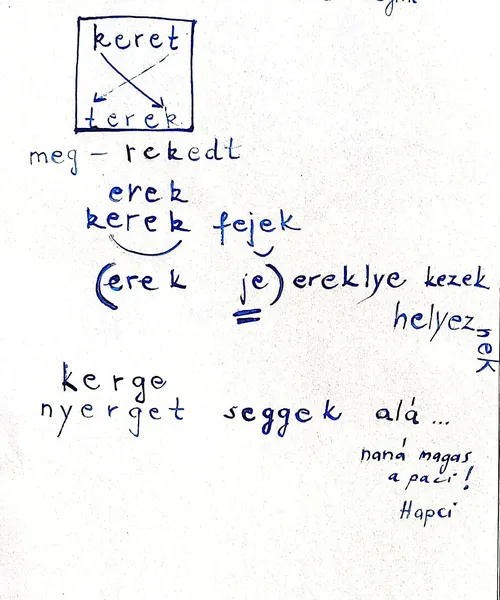 keret
terek
meg - rekedt
erek
kerek fejek
(erek je) ereklye kezek
helyeznek
kerge
nyerget seggek alá...
naná magas
a paci!
Hapci